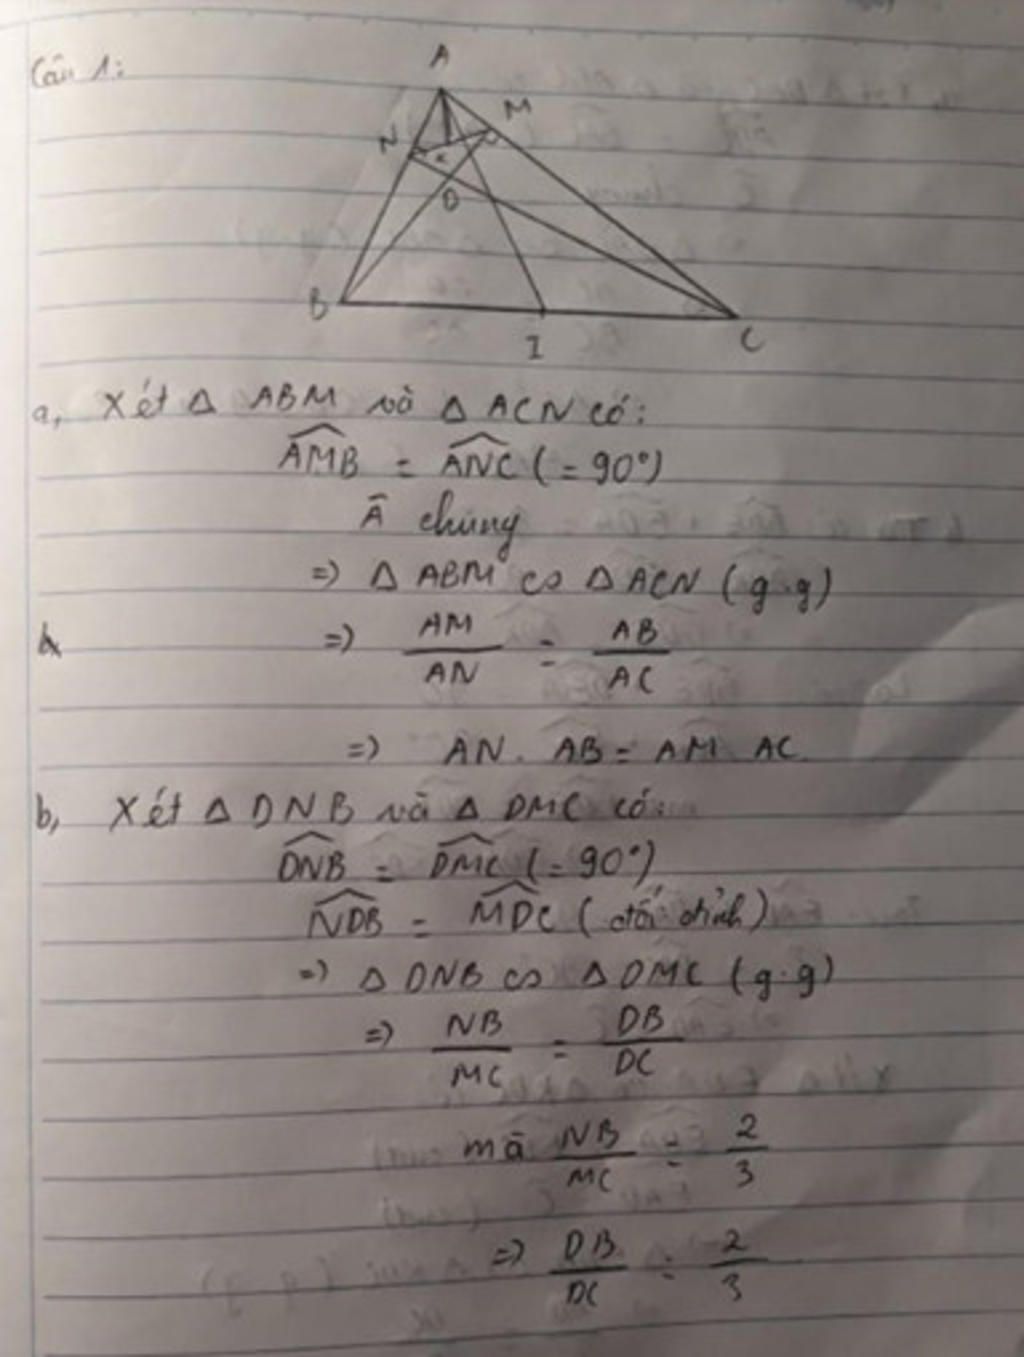 Câu 1:
A
M
N
K
D
B
I
C
a, Xét △ ABM và △ ACN có:
AMB = ANC (= 90°)
A chung
=> △ ABM ∽ △ ACN (g.g)
=> AM/AN = AB/AC
=> AN. AB = AM AC.
b, Xét △ DNB và △ DMC có:
DNB = DMC (= 90°)
NDB = MDC (đối đỉnh)
=> △ DNB ∽ △ DMC (g.g)
=> NB/MC = DB/DC
mà NB/MC = 2/3
=> DB/DC = 2/3